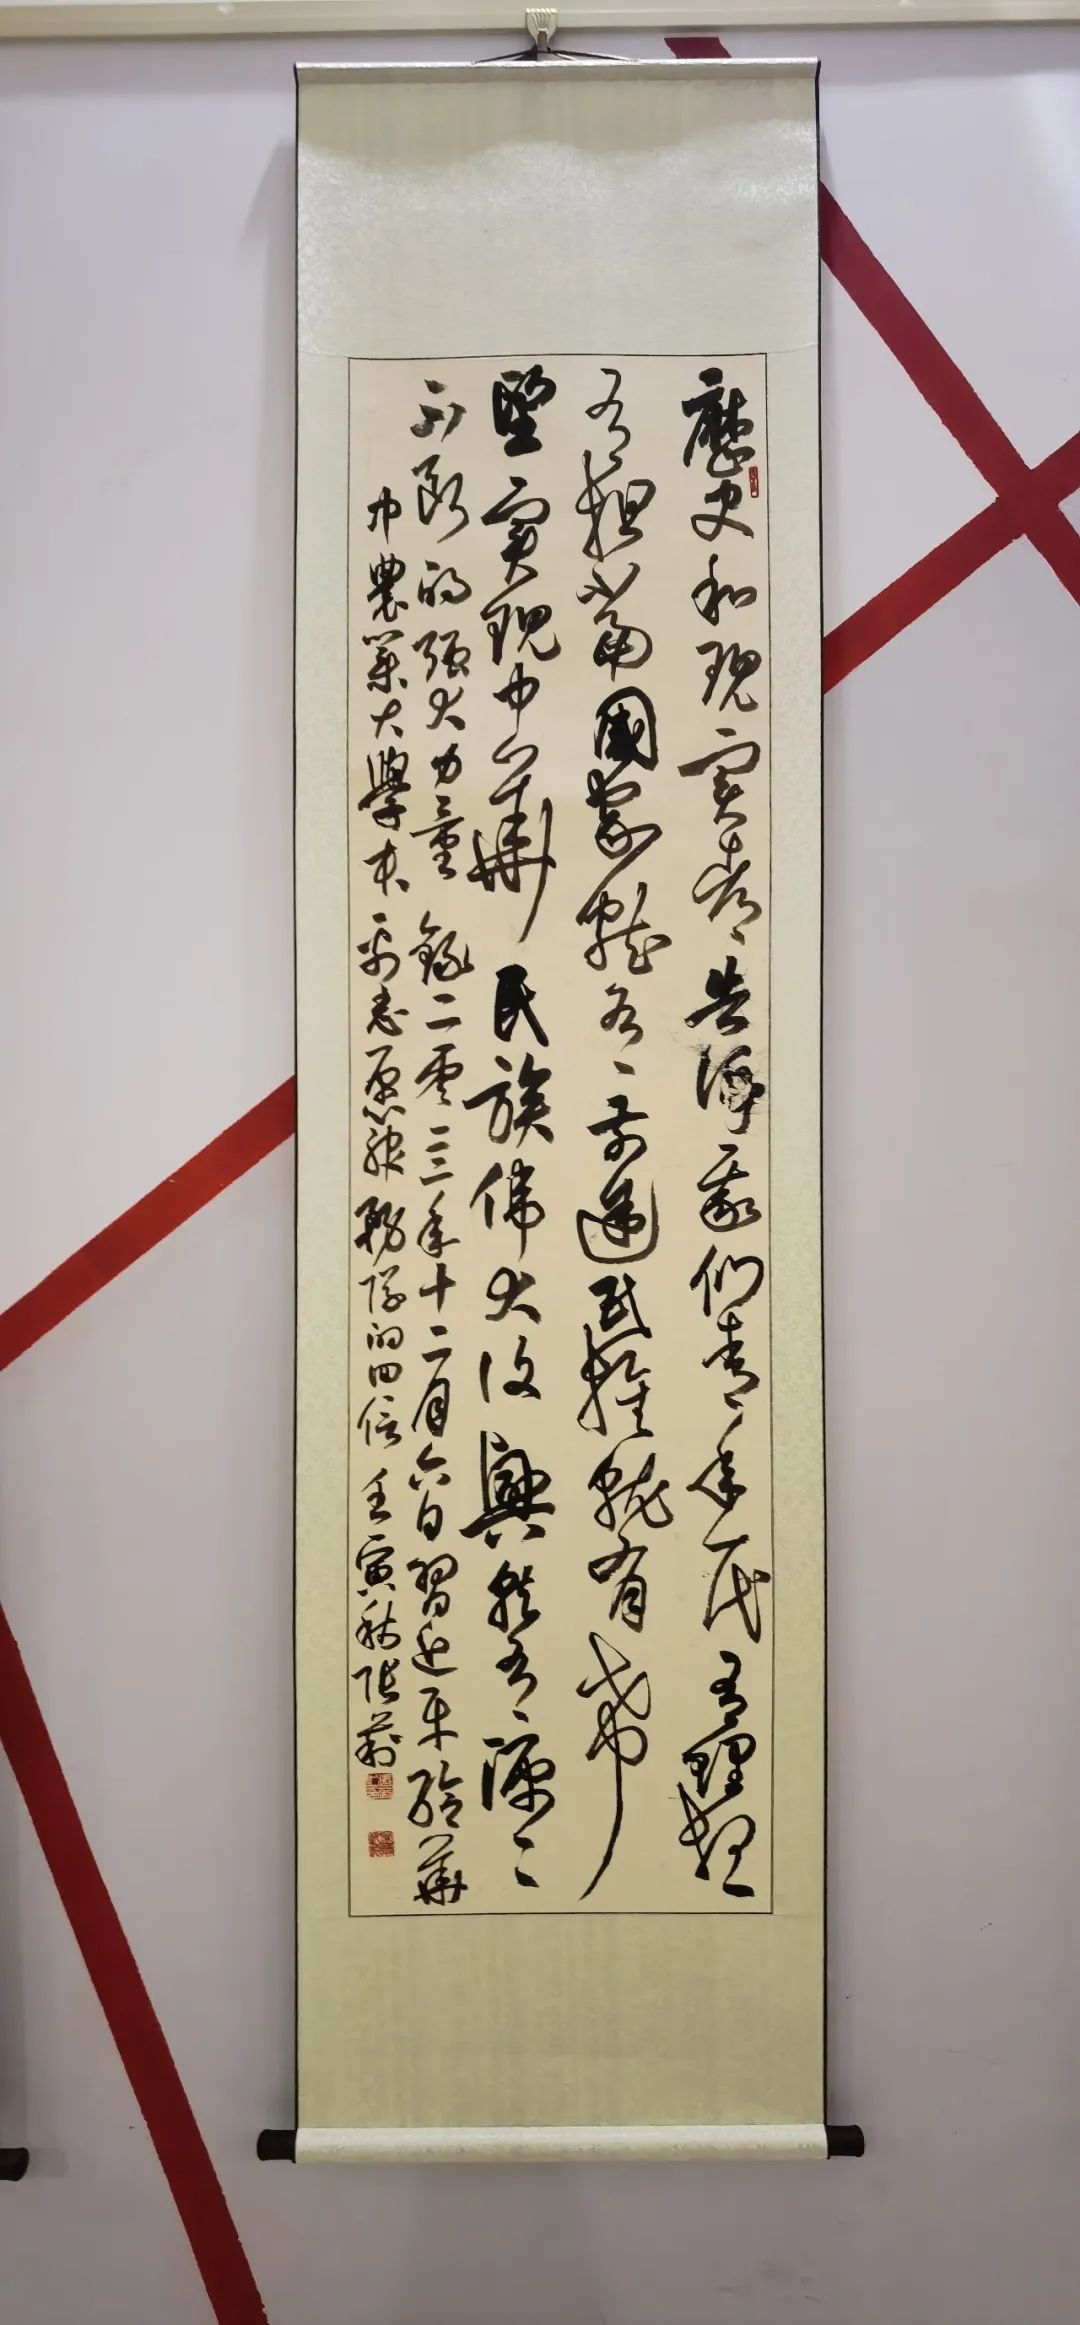 歷史和現實都告訴我們青年一代有理想
有担當國家就有前途民族就有希
望實現中華民族偉大復興就有源々
不斷的强大力量 錄二零一三年十二月六日習近平給華
中農業大學本禹志愿服務隊的回信 壬寅秋張莉